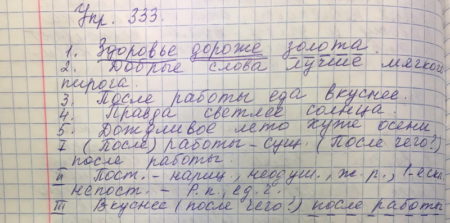 Упр. 333.
1. Здоровье дороже золота.
2. Добрые слова лучше мягкого
пирога.
3. После работы еда вкуснее.
4. Правда светлее солнца
5. Дождливое лето хуже осени
I (После) работы - сущ. (После чего?)
после работы.
II Пост. - нариц., неодуш., ж. р., 1-е скл.
непост. - Р.п., ед. ч.
III Вкуснее (после чего?) после работы